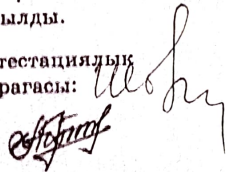 ылды.
тестациялык
рагасы: